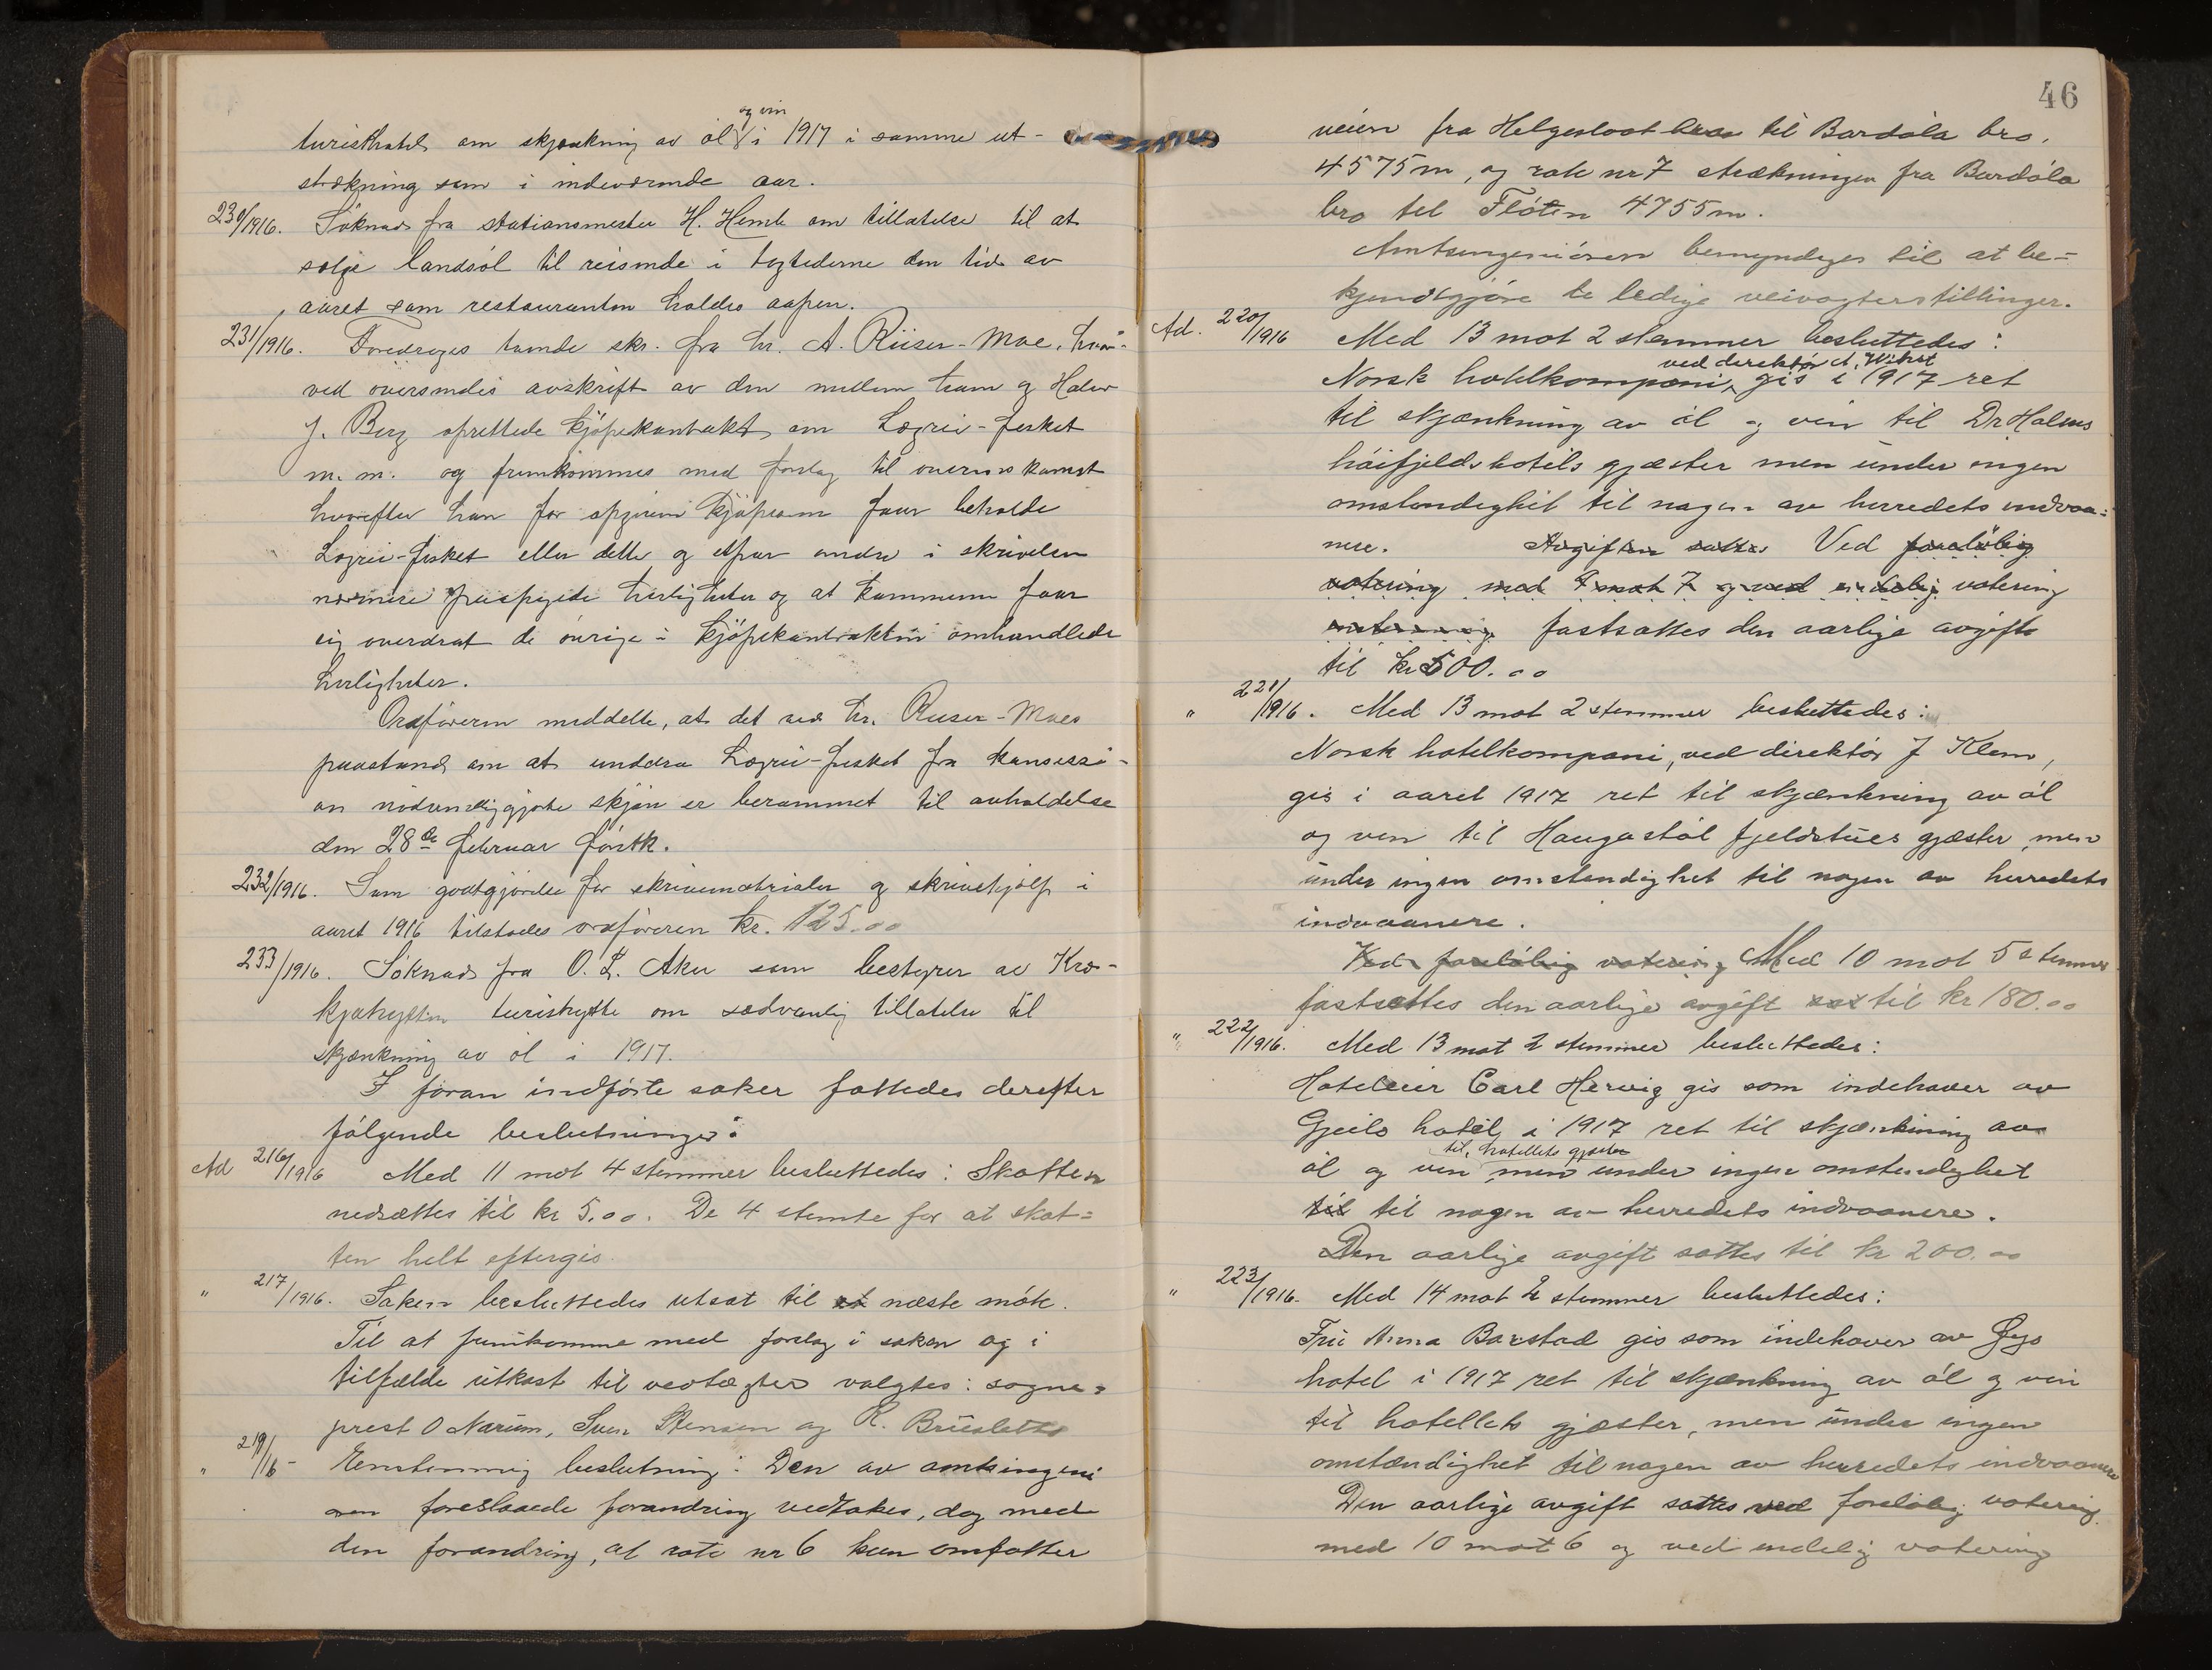 turisthotel om skjænkning av öl og vin i 1917 i samme ut-
strækning som i indeværende aar.
230/1916. Söknad fra stationsmester H. Hemb om tillatelse til at
sælge landsöl til reisende i togtiderne den tid av
aaret som restauranten holdes aapen.
231/1916. Foredroges skr. fra hr. A. Riiser-Moe, hvor-
ved oversendes avskrift av den mellem ham og Halvor
J. Berg oprettede kjöpekontrakt om Lægrei-fisket
m. m. og fremkommes med forslag til overenskomst
hvorefter han for opgiven kjöpesum faar beholde
Lægrei-fisket eller dette og etpar andre i skrivelsen
nærmere herligheter og at kommunen faar
sig overdrat de övrige i kjöpekontrakten omhandlede
herligheter.
Ordföreren meddelte, at det ved hr. Riiser-Moes
paastand om at unddra Lægrei-fisket fra konsessi-
on nödvendiggjorte skjön er berammet til avholdelse
den 28de februar förstk.
232/1916. Som godtgjörelse for skrivematrialer og skrivehjælp i
aaret 1916 tilstodes ordföreren kr. 125.00
233/1916. Söknad fra O. L. Aker som bestyrer av Kræ-
kjahytten turisthytte om sædvanlig tillatelse til
skjænkning av öl i 1917.
I foran indförte saker fattedes derefter
fölgende beslutninger:
Ad 216/1916 Med 11 mot 4 stemmer besluttedes: Skatten
nedsættes til kr 5.00. De 4 stemte for at skat=
ten helt eftergis.
" 217/1916. Saken besluttedes utsat til et næste möte.
Til at fremkomme med forslag i saken og i
tilfælde utkast til vedtægter valgtes: sogne=
prest O Narum, Sven Stensen og K. Brüsletto
" 219/16- Enstemmig beslutning: Den av amtsingeni
ören foreslaaede forandring vedtakes, dog med
den forandring, at rote nr 6 kun omfatter
46
veien fra Helgesloot bro til Bardöla bro.
4575m, og rote nr 7 strækningen fra Bardöla
bro til Flöten 4755m.
Amtsingeniören bemyndiges til at be=
kjendtgjöre de ledige veivogterstillinger.
Ad. 220/1916 Med 13 mot 2 stemmer besluttedes:
Norsk hotelkompani, ved direktör A. gis i 1917 ret
til skjænkning av öl og vin til Dr Holms
höifjeldshotels gjæster men under ingen
omstendighet til nogen av herredets indvaa=
nere. Avgiften sattes Ved foreløbig
votering med 8 mot 7 og ved endelig votering
fastsattes den aarlige avgift
til kr 500.00
" 221/1916. Med 13 mot 2 stemmer besluttedes:
Norsk hotelkompani, ved direktör J Klem,
gis i aaret 1917 ret til skjænkning av öl
og vin til Haugastöl fjeldstues gjæster men
under ingen omstendighet til nogen av herredets
indvaanere.
Ved foreløbig votering Med 10 mot 5 stemmer
fastsættes den aarlige avgift til kr 180.00
" 222/1916. Med 13 mot 2 stemmer besluttedes:
Hoteleier Carl Herwig gis som indehaver av
Gjeilo hotel i 1917 ret til skjænkning av
öl og vin til hotellets gjæster men under ingen omstendighet
til til nogen av herredets indvaanere.
Den aarlige avgift sattes til kr 200.00
" 223/1916. Med 14 mot 2 stemmer besluttedes:
Fru Anna Barstad gis som indehaver av Øyo
hotel i 1917 ret til skjænkning av öl og vin
til hotellets gjæster, men under ingen
omstændighet til nogen av herredets indvaanere
Den aarlige avgift sattes ved forelöbig votering
med 10 mot 6 og ved endelig votering